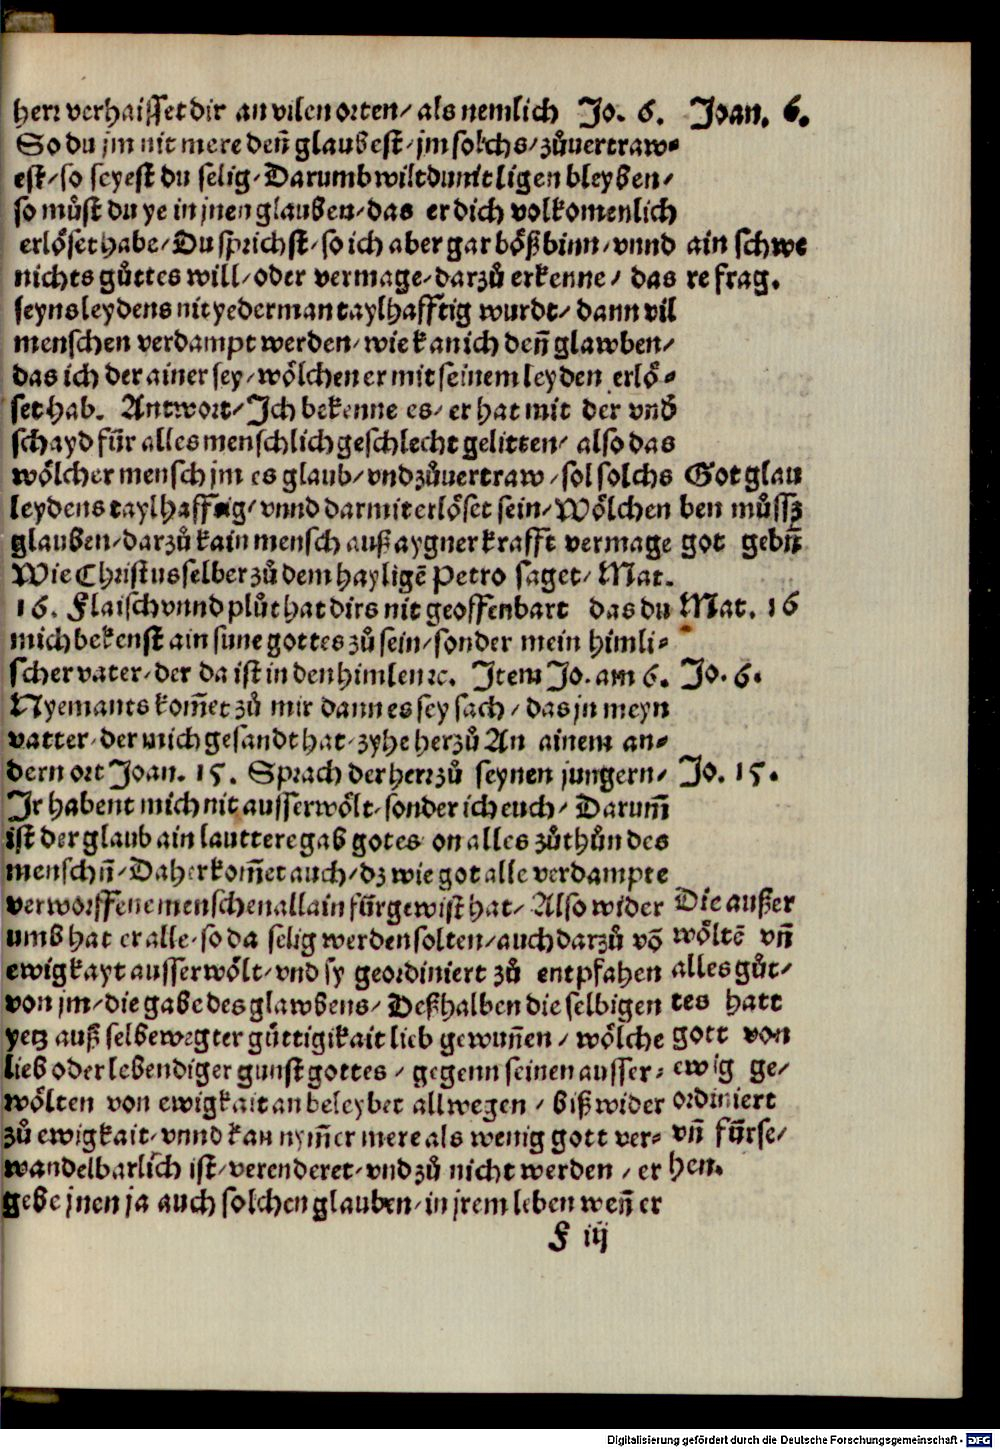 herr verhaisset dir an vilen orten/ als nemlich Jo. 6. Joan. 6.
So du jm nit mere deñ glaubest/ jm solchs/ zůuertraw⸗
est/ so seyest du selig/ Darumb wilt du nit ligen bleyben/
so můst du ye in jnen glauben/ das er dich volkomenlich
erlöset habe/ Du sprichst/ so ich aber gar böß binn/ vnnd ain schwe
nichts gůttes will/ oder vermage/ darzů erkenne/ das re frag.
seyns leydens nit yederman taylhafftig wurdt/ dann vil
menschen verdampt werden/ wie kan ich deñ glawben/
das ich der ainer sey/ wölchen er mit seinem leyden erlö⸗
set hab. Antwort/ Ich bekenne es/ er hat mit der vnd
schayd für alles menschlich geschlecht gelitten/ also das
wölcher mensch jm es glaub/ vnd zůuertraw/ sol solchs Got glau
leydens taylhafftig/ vnnd darmit erlöset sein/ Wölchen ben můssz
glauben/ darzů kain mensch auß aygner krafft vermage got gebñ
Wie Christus selber zů dem hayligē Petro saget/ Mat.
16. Flaisch vnnd plůt hat dirs nit geoffenbart das du Mat. 16
mich bekenst ain sune gottes zů sein/ sonder mein himli⸗
scher vater/ der da ist in den himlen ꝛc. Item Jo. am 6. Jo. 6.
Nyemants kom̄et zů mir dann es sey sach/ das jn meyn
vatter/ der mich gesandt hat/ zyhe herzů An ainem an⸗
dern ort Joan. 15. Sprach der herr zů seynen jungern/ Jo. 15.
Ir habent mich nit ausserwölt/ sonder ich euch/ Darum̄
ist der glaub ain lauttere gab gotes on alles zůthůn des
menschñ/ Daher kom̄et auch/ dz wie got alle verdampte
verworffene menschen allain für gewist hat/ Also wider Die außer
umb hat er alle/ so da selig werden solten/ auch darzů vō wöltē vñ
ewigkayt ausserwölt/ vnd sy geordiniert zů entpfahen alles gůt/
von jm/ die gabe des glawbens/ Deßhalben die selbigen tes hatt
yetz auß selbewegter güttigikait lieb gewuñen/ wölche gott von
lieb oder lebendiger gunst gottes/ gegenn seinen ausser⸗ ewig ge/
wölten von ewigkait an beleybet allwegen/ biß wider ordiniert
zů ewigkait/ vnnd kan nym̄er mere als wenig gott ver⸗ vñ fürse/
wandelbarlich ist/ verenderet/ vnd zů nicht werden/ er hen.
gebe jnen ja auch solchen glauben/ in jrem leben weñ er
F iij
Digitalisierung gefördert durch die Deutsche Forschungsgemeinschaft - DFG